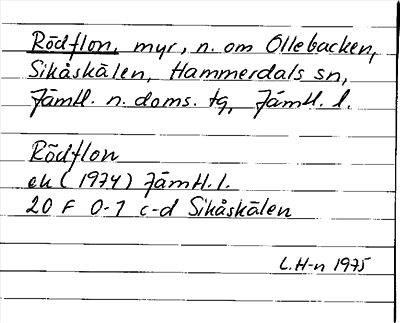 Rödflon, myr, n. om Ollebacken,
Sikåskälen, Hammerdals sn,
Jämtl. n. doms. tg, Jämtl. l.
Rödflon
ek (1974) Jämtl. l.
20 F 0-1 c-d Sikåskälen
L.H-n 1975